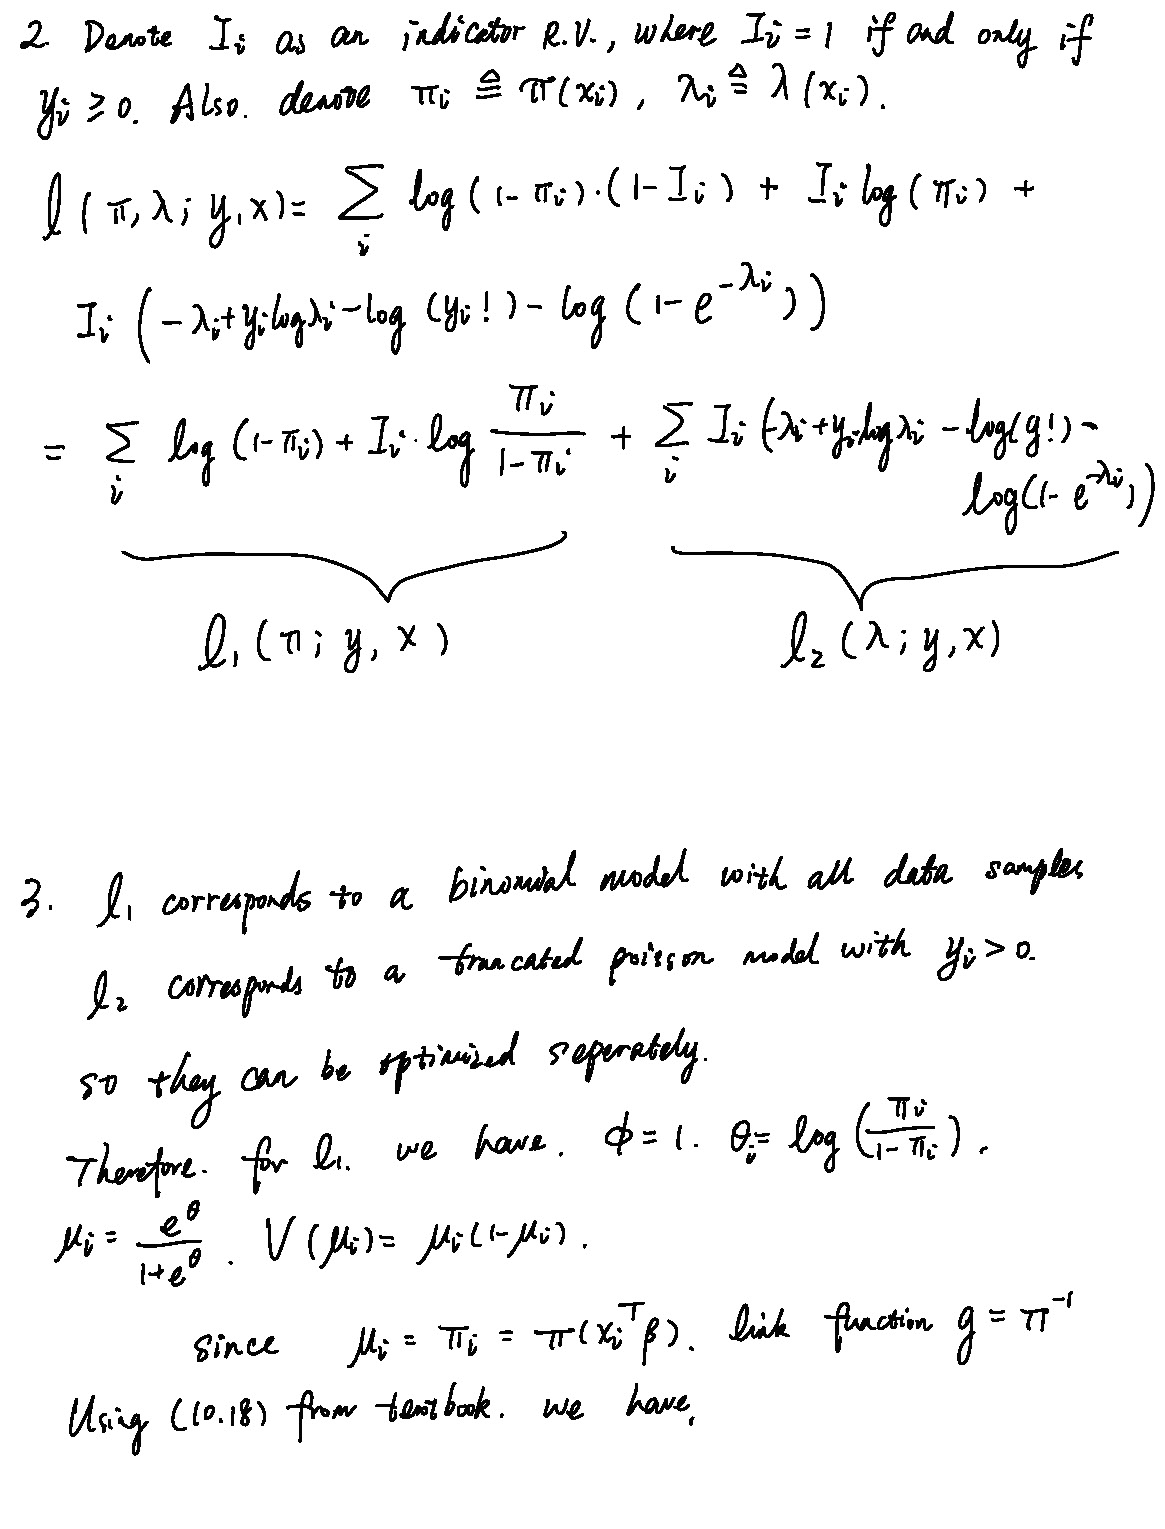 2. Denote Iᵢ as an indicator R.V., where Iᵢ = 1 if and only if
yᵢ ≥ 0. Also. denote πᵢ ≜ π(xᵢ), λᵢ ≜ λ(xᵢ).
l(π, λ; y, x) = Σᵢ log(1-πᵢ)·(1-Iᵢ) + Iᵢ log(πᵢ) +
Iᵢ(-λᵢ+yᵢlogλᵢ-log(yᵢ!)-log(1-e^{-λᵢ}))
= Σᵢ log(1-πᵢ) + Iᵢ·log πᵢ/(1-πᵢ) + Σᵢ Iᵢ(-λᵢ+yᵢlogλᵢ-log(y!)-
log(1-e^{-λᵢ}))
l₁(π; y, x) l₂(λ; y, x)
3. l₁ corresponds to a binomial model with all data samples
l₂ corresponds to a truncated poisson model with yᵢ > 0.
so they can be optimized seperately.
Therefore. for l₁. we have. ϕ = 1. θᵢ = log(πᵢ/(1-πᵢ)).
μᵢ = e^θ/(1+e^θ). V(μᵢ) = μᵢ(1-μᵢ).
since μᵢ = πᵢ = π(xᵢᵀβ). link function g = π⁻¹
Using (10.18) from textbook. we have,